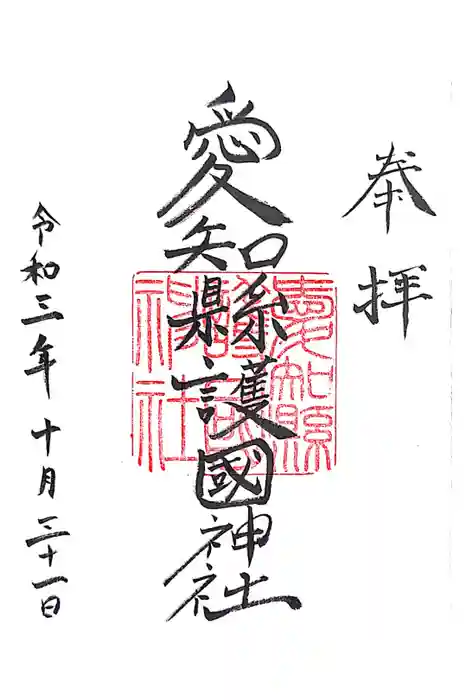 奉拝
愛知縣護國神社
愛知縣
護國
神社
令和三年十月三十一日